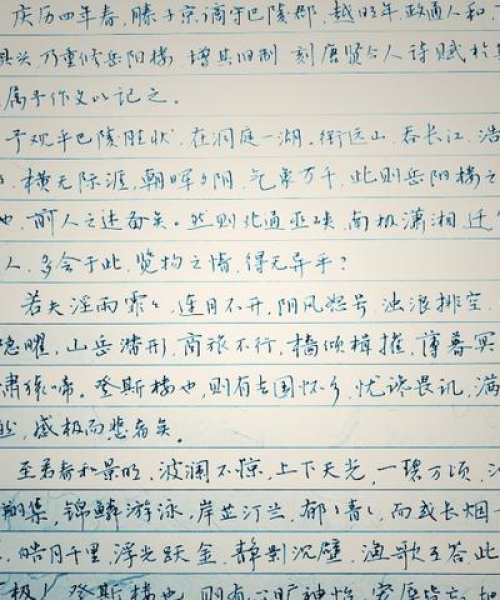 庆历四年春，滕子京谪守巴陵郡，越明年，政通人和，
具兴，乃重修岳阳楼，增其旧制，刻唐贤今人诗赋于其
属予作文以记之。
予观乎巴陵胜状，在洞庭一湖。衔远山，吞长江，浩
横无际涯，朝晖夕阴，气象万千，此则岳阳楼之
也，前人之述备矣。然则北通巫峡，南极潇湘，迁
人，多会于此，览物之情，得无异乎？
若夫淫雨霏霏，连月不开，阴风怒号，浊浪排空，
隐曜，山岳潜形，商旅不行，樯倾楫摧，薄暮冥
啸猿啼。登斯楼也，则有去国怀乡，忧谗畏讥，满
然，感极而悲者矣。
至若春和景明，波澜不惊，上下天光，一碧万顷，沙
翔集，锦鳞游泳，岸芷汀兰，郁郁青青，而或长烟一
，皓月千里，浮光跃金，静影沉璧，渔歌互答，此
极！登斯楼也，则有心旷神怡，宠辱皆忘，把